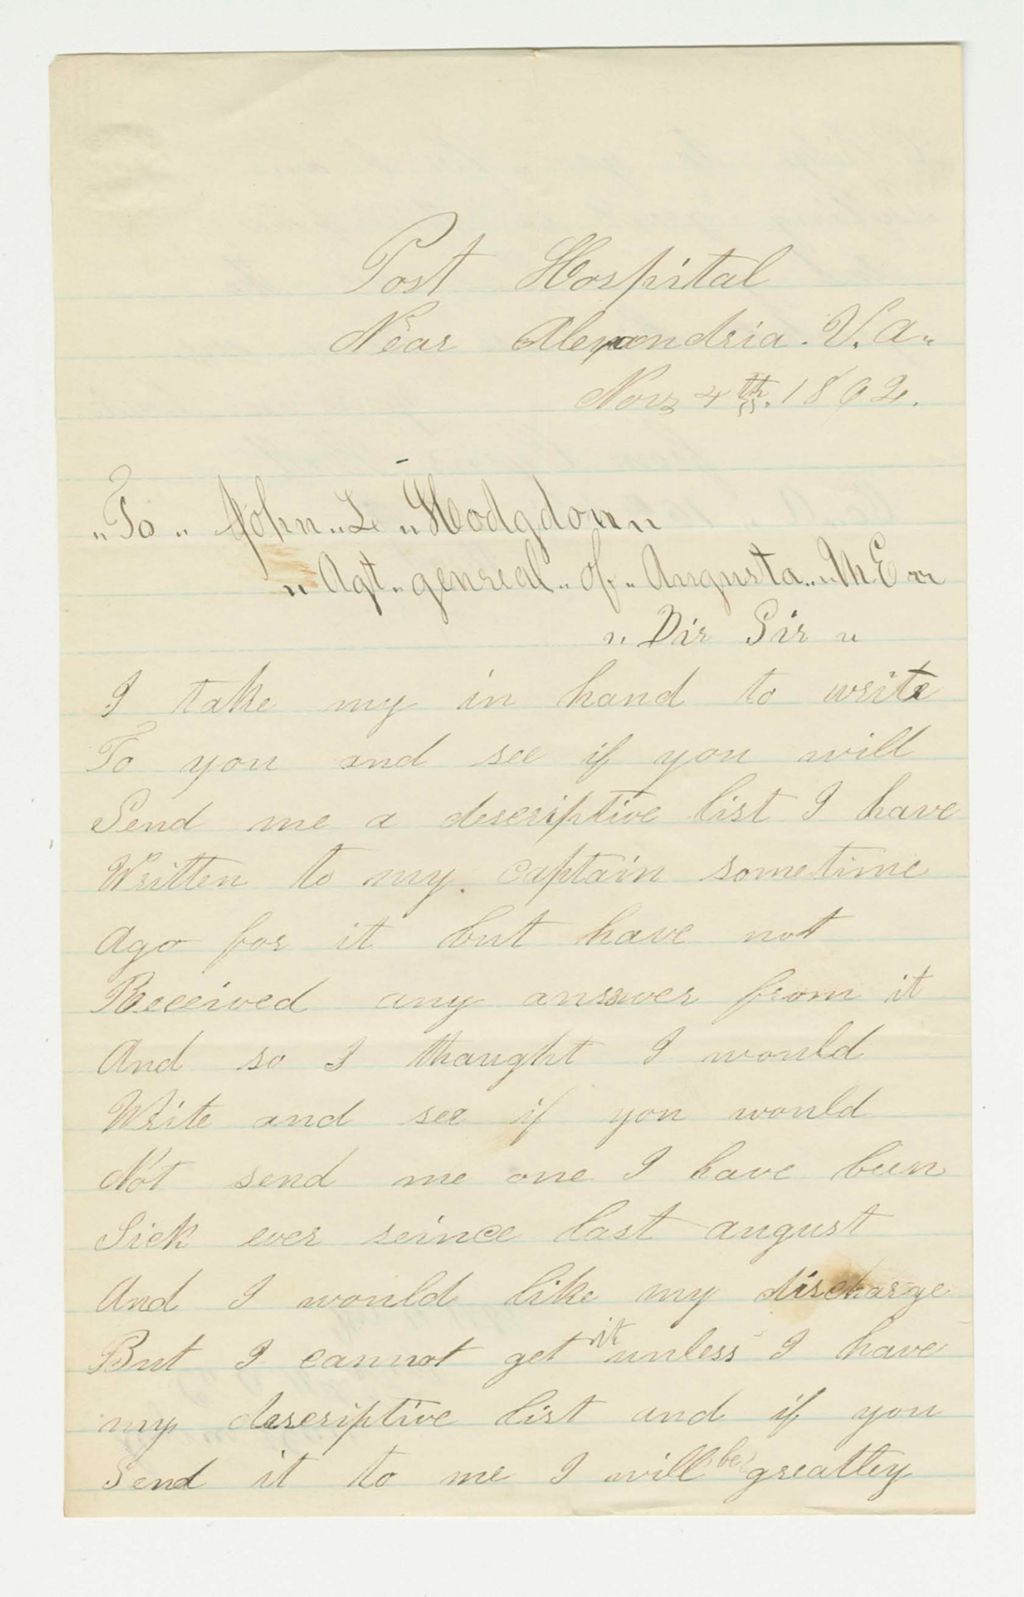 Post Hospital
Near Alexandria. V. A.
Nov 4th. 1862.
"To" John "L" Hodgdon"
"Agt" genreal "of" Augusta "M E"
"Dir Sir"
I take my in hand to write
To you and see if you will
Send me a descriptive list I have
Written to my. captain sometime
Ago for it but have not
Received any answer from it
And so I thaught I would
Write and see if you would
Not send me one I have been
Sick ever seince last august
And I would like my discharge
But I cannot get it unless I have
my descriptive list and if you
Send it to me I will be greatley